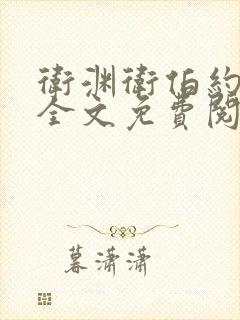 衛渊衛伯約
全文免費閱
暮潇潇